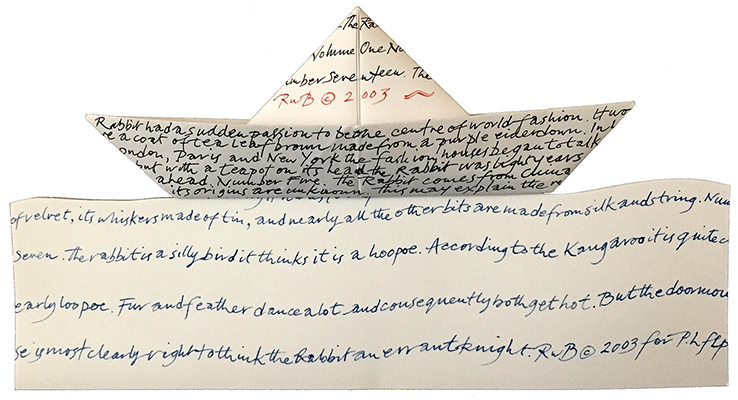 The Ra
Volume One Nu
umber Seventeen. The
RwB © 2003
Rabbit had a sudden passion to become centre of world fashion. It wo
re a coat of tea leaf brown made from a purple eiderdown. In L
ondon, Paris and New York the fashion houses began to talk
but with a teapot on its head the Rabbit was light years
ahead. Number Five. The Rabbit comes from China
its origins are unknown. This may explain the
of velvet, its whiskers made of tin, and nearly all the other bits are made from silk and string. Num
Seven. The rabbit is a silly bird it thinks it is a hoopoe. According to the Kangaroo it is quite c
early loopoe. Fur and feather dance a lot and consequently both get hot. But the doormou
se is most clearly right to think the Rabbit an errant knight. RwB © 2003 for